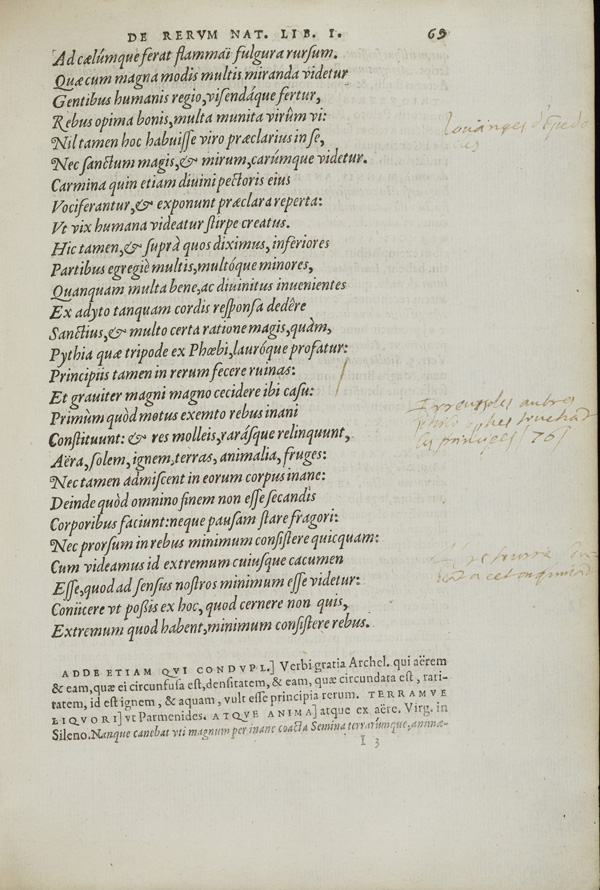 DE RERVM NAT. LIB. I. 69
Ad cælúmque ferat flammaï fulgura rursum.
Quæ cum magna modis multis miranda videtur
Gentibus humanis regio, visendáque fertur,
Rebus opima bonis, multa munita virûm vi:
Nil tamen hoc habuisse viro præclarius in se,
Nec sanctum magis, & mirum, carúmque videtur.
Carmina quin etiam diuini pectoris eius
Vociferantur, & exponunt præclara reperta:
Vt vix humana videatur stirpe creatus.
Hic tamen, & suprà quos diximus, inferiores
Partibus egregiè multis, multóque minores,
Quanquam multa bene, ac diuinitus inuenientes
Ex adyto tanquam cordis responsa dedêre
Sanctius, & multo certa ratione magis, quàm,
Pythia quæ tripode ex Phœbi, lauróque profatur:
Principiis tamen in rerum fecere ruinas:
Et grauiter magni magno cecidere ibi casu:
Primùm quòd motus exemto rebus inani
Constituunt: & res molleis, rarásque relinquunt,
Aëra, solem, ignem, terras, animalia, fruges:
Nec tamen admiscent in eorum corpus inane:
Deinde quòd omnino finem non esse secandis
Corporibus faciunt: neque pausam stare fragori:
Nec prorsum in rebus minimum consistere quicquam:
Cum videamus id extremum cuiusque cacumen
Esse, quod ad sensus nostros minimum esse videtur:
Coniicere vt possis ex hoc, quod cernere non quis,
Extremum quod habent, minimum consistere rebus.
louanges
autres
[76]
ADDE ETIAM QVI CONDVPL.] Verbi gratia Archel. qui aërem
& eam, quæ ei circunfusa est, densitatem, & eam, quæ circundata est, rari-
tatem, id est ignem, & aquam, vult esse principia rerum. TERRAMVE
LIQVORI] vt Parmenides. ATQVE ANIMA] atque ex aëre. Virg. in
Sileno. Nanque canebat vti magnum per inane coacta Semina terrarumque, animæ-
I 3